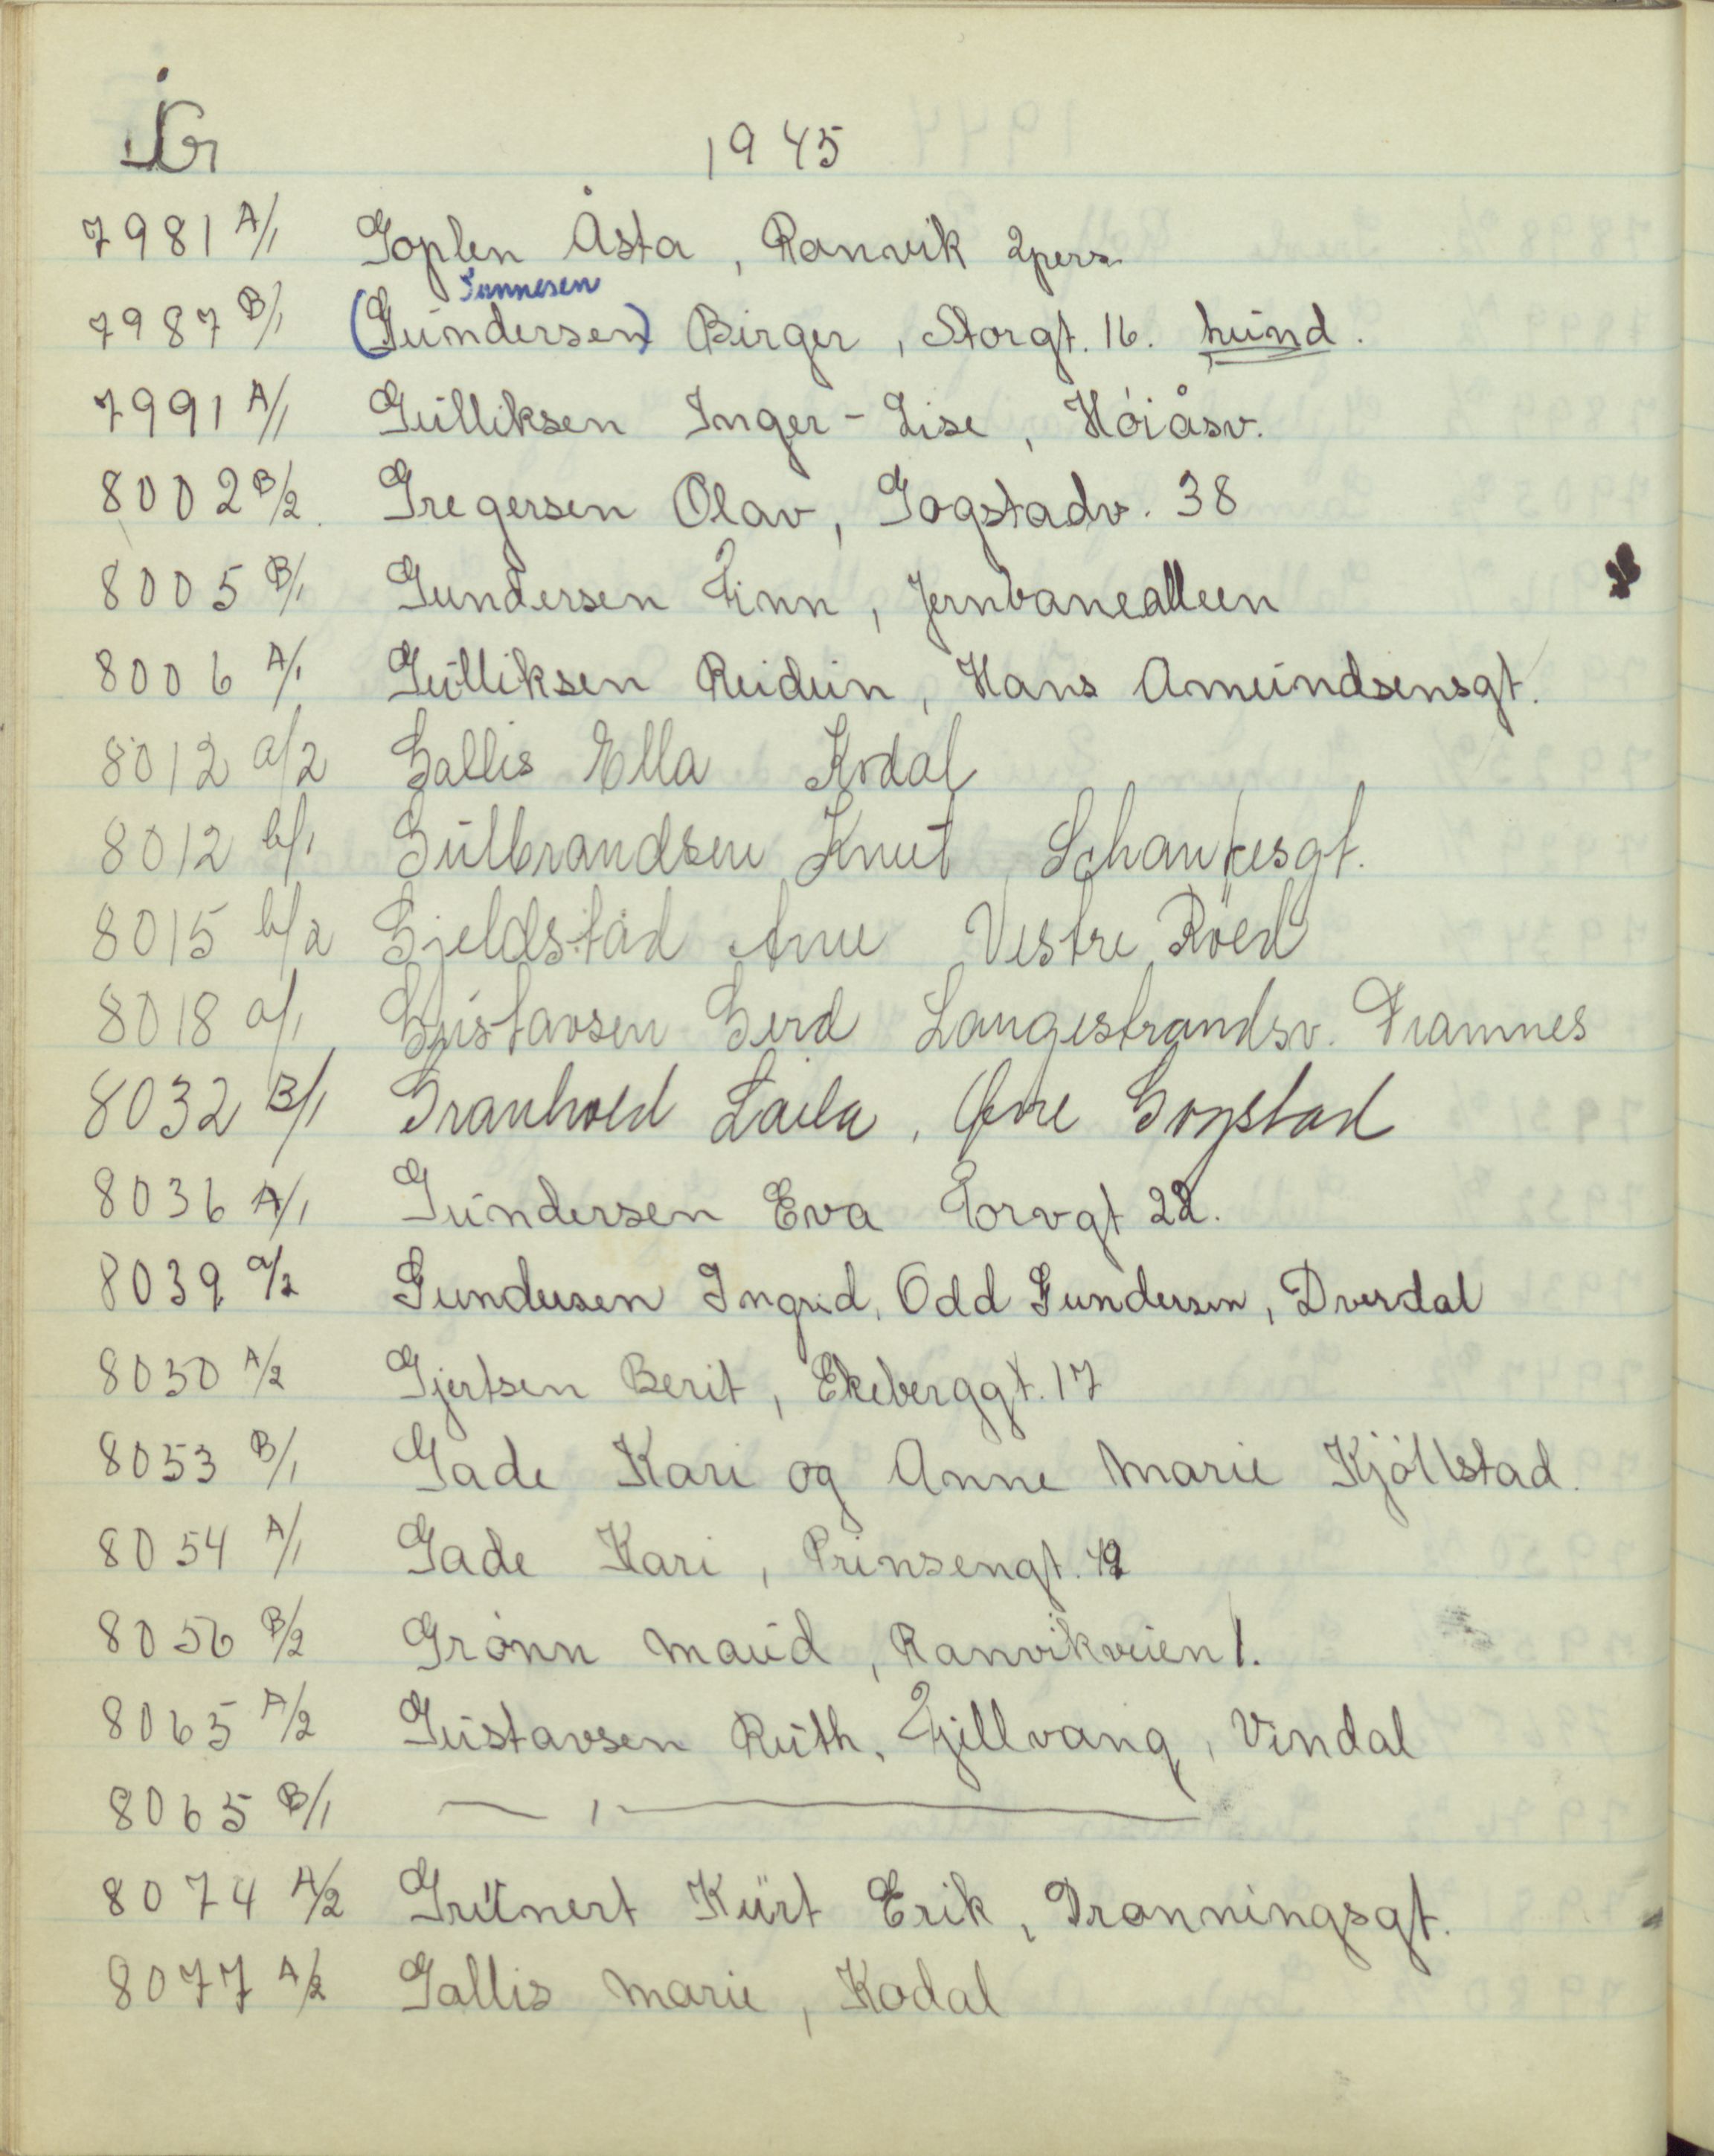 G
1945
7981 A/1 Goplen Åsta, Ranvik 2pers.
Tønnesen
7987 B/1 (Gundersen) Birger, Storgt. 16. hund.
7991 A/1 Gulliksen Inger-Lise, Høiåsv.
8002 B/2 Gregersen Olav, Gogstadv. 38
8005 B/1 Gundersen Finn, Jernbanealleen
8006 A/1 Gulliksen Reidun, Hans Amundsensgt.
8012 a/2 Gallis Ella Kodal
8012 b/1 Gulbrandsen Knut, Schankesgt.
8015 b/2 Gjeldstad Arne Vestre Röed
8018 a/1 Gustavsen Gerd Langestrandsv. Framnes
8032 B/1 Granhold Laila, Øvre Gogstad
8036 A/1 Gundersen Eva Torvgt 22.
8039 a/2 Gundersen Ingrid, Odd Gundersen, Dverdal
8050 A/2 Gjertsen Berit, Ekeberggt. 17
8053 B/1 Gade Kari og Anne Marie Kjøllstad.
8054 A/1 Gade Kari, Prinsengt.
8056 B/2 Grønn Maud, Ranvikveien 1.
8065 A/2 Gustavsen Ruth, Fjillvang, Vindal
8065 B/1 — , —
8074 A/2 Grünert Kürt Erik, Dronningsgt.
8077 A/2 Gallis Marie, Kodal